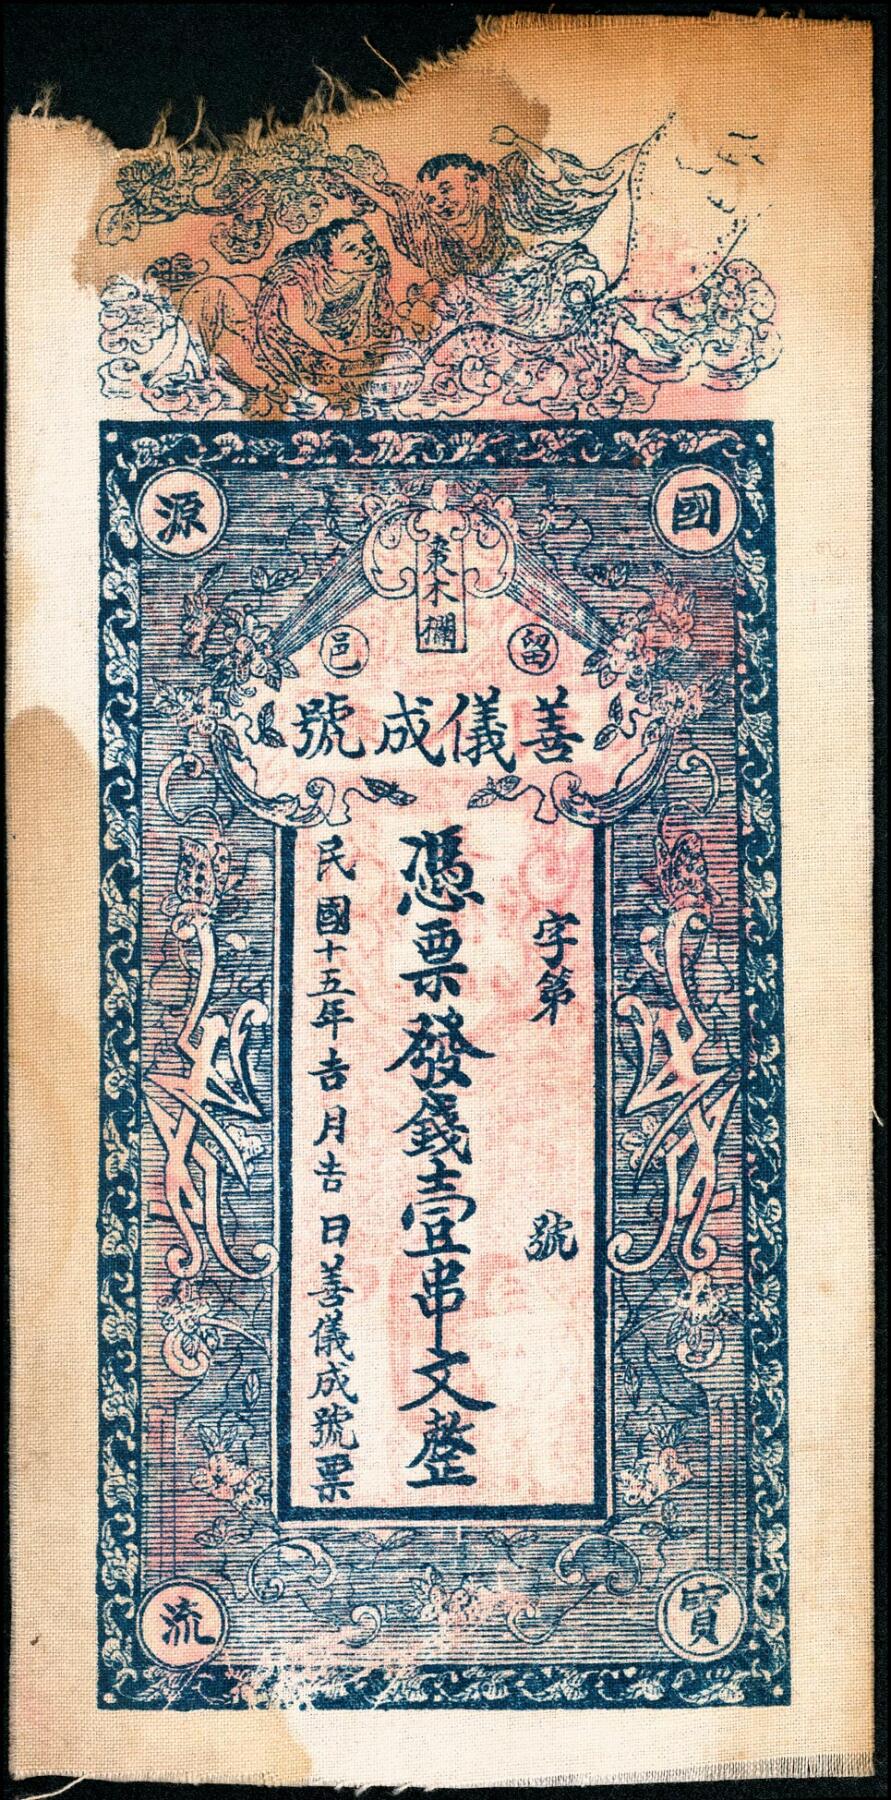 國源
東木欄
留邑
善儀成號
字第 號
憑票發錢壹串文整
民國十五年吉月吉日善儀成號票
寶流